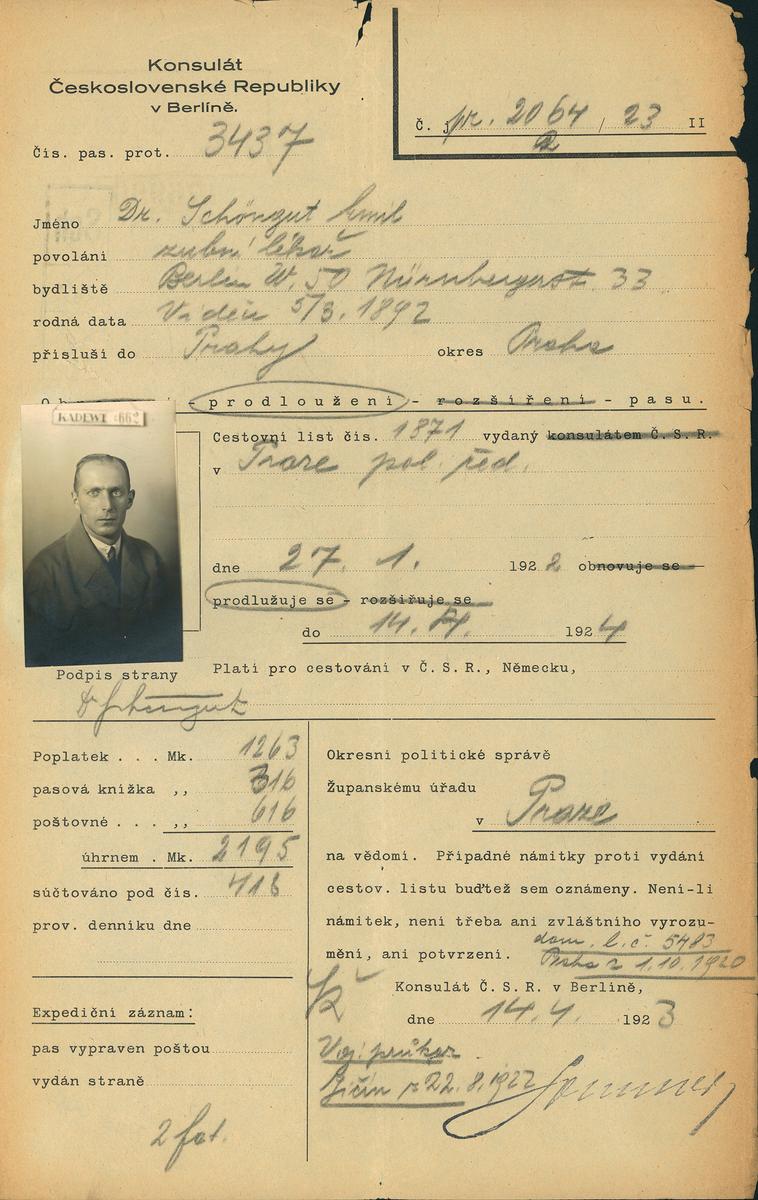 Konsulát
Československé Republiky
v Berlíně.
Č. pr. 2064 / 23 II
Čís. pas. prot. 3437
Jméno Dr. Schöngut Emil
povolání zubní lékař
bydliště Berlin W. 50 Nürnbergerst. 33
rodná data Vídeň 5/3. 1892
přísluší do Prahy okres Praha
- prodloužení - rozšíření - pasu.
KADEWE 662
Cestovní list čís. 1371 vydaný konsulátem Č. S. R.
v Praze pol. řed.
dne 27. 1. 1922 obnovuje se
prodlužuje se - rozšiřuje se
do 14. 1924
Platí pro cestování v Č. S. R., Německu,
Podpis strany
Dr Schöngut
Poplatek . . . Mk. 1263
pasová knížka ,, 316
poštovné . . . ,, 616
úhrnem . Mk. 2195
súčtováno pod čís. 418
prov. denníku dne
Expediční záznam:
pas vypraven poštou
vydán straně
2 fot.
Okresní politické správě
Županskému úřadu
v Praze
na vědomí. Případné námitky proti vydání
cestov. listu buďtež sem oznámeny. Není-li
námitek, není třeba ani zvláštního vyrozu-
mění, ani potvrzení.
dom. l. č. 5483
Praha z 1.10.1920
Konsulát Č. S. R. v Berlíně,
dne 14. 4. 1923
Voj. průkaz
Jičín z 22. 8. 1922